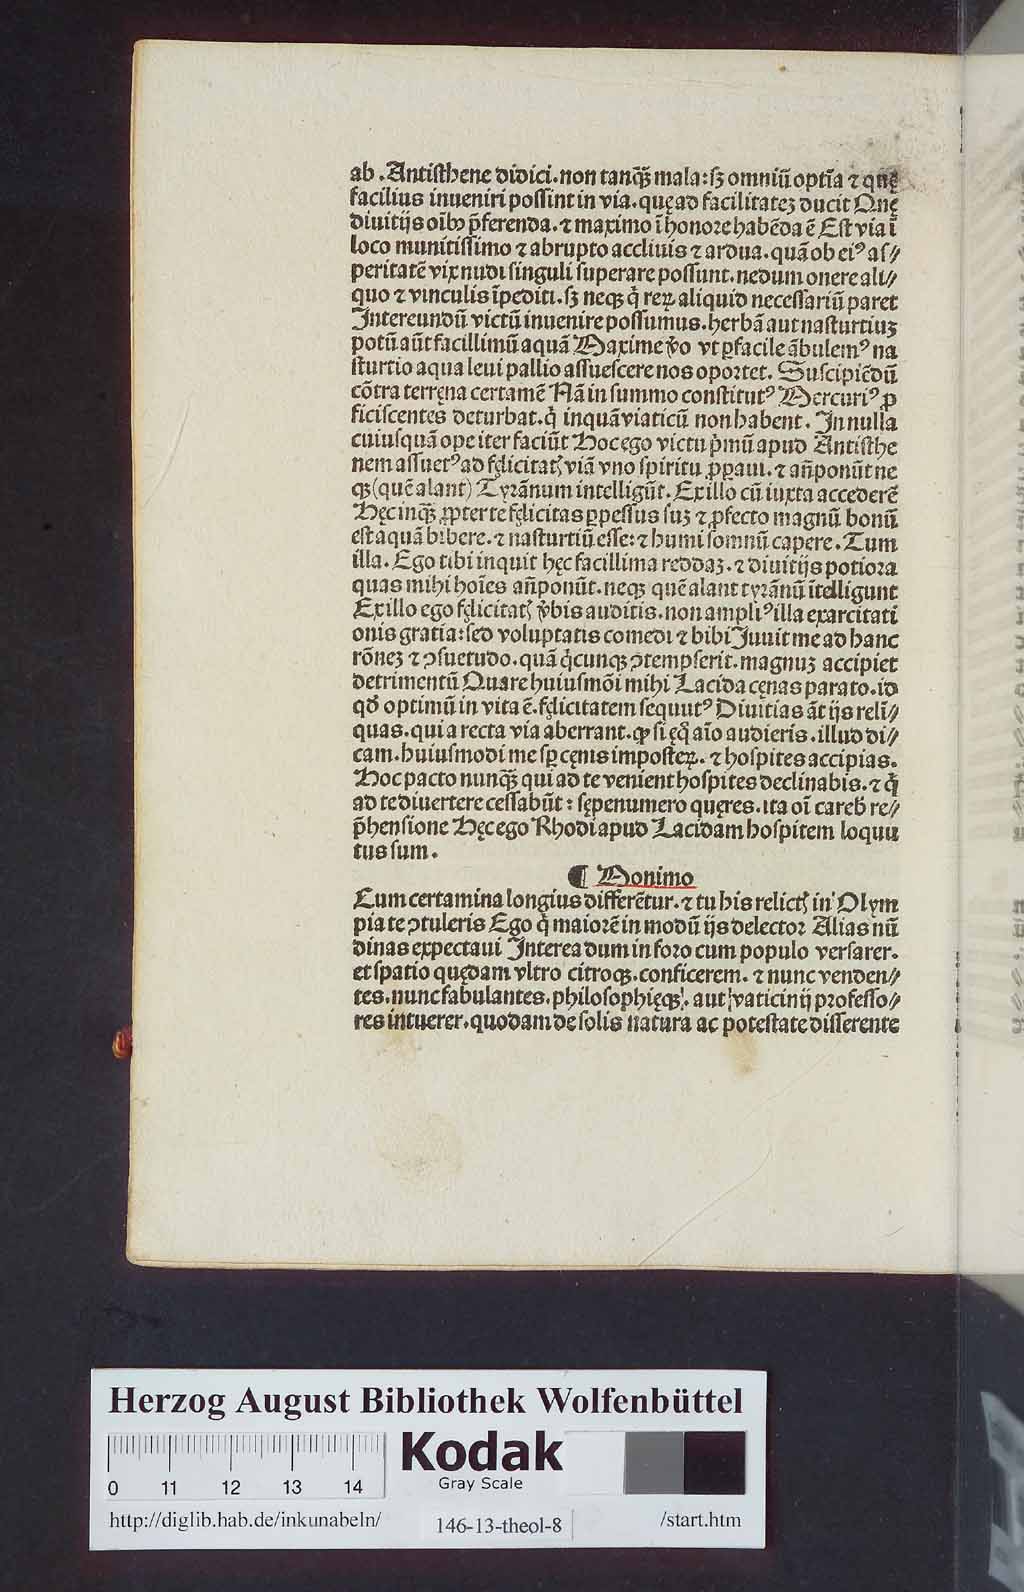 ab .Antisthene didici.non tanqꝫ mala:sꝫ omniū optīa ⁊ quę
facilius inueniri possint in via.quę ad facilitateꝫ ducit Quę
diuitijs oībꝰ p̄ferenda.⁊ maximo ī honore habēda ē Est via ī
loco munitissimo ⁊ abrupto accliuis ⁊ ardua.quā ob eiꝰ as//
peritatē vix nudi singuli superare possunt.nedum onere ali//
quo ⁊ vinculis īpediti.sꝫ neqꝫ q̇ reꝝ aliquid necessariū paret
Intereundū victū inuenire possumus.herbā aut nasturtiuꝫ
potū aūt facillimū aquā Maxime v̄o vt ꝑfacile ābulemꝰ na
sturtio aqua leui pallio assuescere nos oportet. Suscipiēdū
cōtra terręna certamē Nā in summo constitutꝰ Mercuriꝰ ꝓ
ficiscentes deturbat.q̇ inquā viaticū non habent. In nulla
cuiusquā ope iter faciūt Hoc ego victu p̄mū apud Antisthe
nem assuetꝰ ad fęlicitatꝭ viā vno spiritu ꝓꝑaui.⁊ an̄ponūt ne
qꝫ(quē alant) Tyrānum intelligūt. Ex illo cū iuxta accederē
Hęc inqꝫ ꝓpter te fęlicitas ꝑpessus suꝫ ⁊ ꝓfecto magnū bonū
est aquā bibere.⁊ nasturtiū esse:⁊ humi somnū capere. Tum
illa. Ego tibi inquit hęc facillima reddaꝫ.⁊ diuitijs potiora
quas mihi hoīes an̄ponūt.neqꝫ quē alant tyrānū ītelligunt
Ex illo ego fęlicitatꝭ v̄bis auditis.non ampliꝰ illa exarcitati
onis gratia:sed voluptatis comedi ⁊ bibi Iuuit me ad hanc
rōneꝫ ⁊ ꝯsuetudo.quā q̇cunqꝫ ꝯtempserit.magnuꝫ accipiet
detrimentū Quare huiusmōi mihi Lacida cęnas parato.id
qd̄ optimū in vita ē.fęlicitatem sequutꝰ Diuitias āt ijs relī//
quas.qui a recta via aberrant.ꝙ si ęq̄ aīo audieris.illud di//
cam.huiusmodi me sꝑ cęnis imposteꝝ.⁊ hospites accipias.
Hoc pacto nunqꝫ qui ad te venient hospites declinabis.⁊ q̇
ad te diuertere cessabūt: sępenumero quęres.ita oī careb̄ re//
p̄hensione Hęc ego Rhodi apud Lacidam hospitem loquu
tus sum.
¶ Monimo
Cum certamina longius differētur.⁊ tu his relictꝭ in Olym
pia te ꝯtuleris Ego q̇ maiorē in modū ijs delector Alias nū
dinas expectaui Interea dum in foro cum populo versarer.
et spatio quędam vltro citroqꝫ.conficerem.⁊ nunc venden//
tes.nunc fabulantes.philosophięqꝫ. aut vaticinij professo//
res intuerer.quodam de solis natura ac potestate disserente
Herzog August Bibliothek Wolfenbüttel
Kodak
Gray Scale
0 11 12 13 14
http://diglib.hab.de/inkunabeln/ 146-13-theol-8 /start.htm